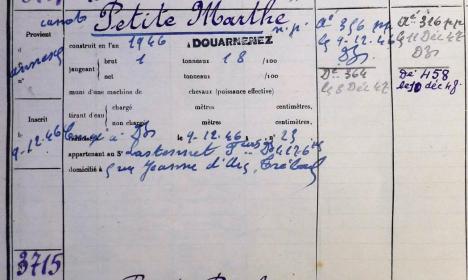 canot
Petite Marthe
n. p.
Provient
d
n°
construit en l'an 1946
à DOUARNENEZ
jaugeant
brut 1 tonneaux 18 /100
net tonneaux /100
muni d'une machine de chevaux (puissance effective)
tirant d'eau
chargé mètres centimètres,
non chargé mètres centimètres,
Inscrit
9.12.46
à Dz le 9-12.46 n° 23
appartenant au Sr Lastennet
domicilié à rue Jeanne d'Arc, Tréboul
3715
le 9-12.46
Dz
Dt 364
le 8 Déc 47
At 316 p.p.
le 11 Déc 47
Dz
Dt 458
le 10 déc 48.